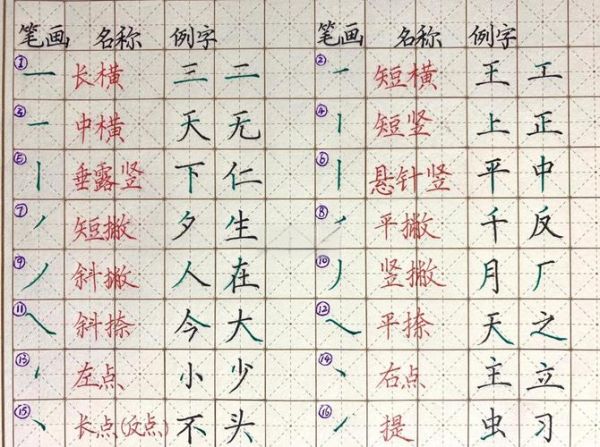 笔画 名称 例字 笔画 名称 例字
① 一 长横 三 二 ② ㇀ 短横 王 工
③ 一 中横 天 无 ④ 丨 短竖 上 正
⑤ 丨 垂露竖 下 仁 ⑥ 丨 悬针竖 平 中
⑦ ㇒ 短撇 夕 生 ⑧ ㇒ 平撇 千 反
⑨ 丿 斜撇 人 在 ⑩ 丿 竖撇 月 厂
⑪ ㇏ 斜捺 今 大 ⑫ ㇏ 平捺 天 之
⑬ ㇔ 左点 小 少 ⑭ 丶 右点 主 立
⑮ 丶 长点(反点) 不 头 ⑯ ㇀ 提 虫 习